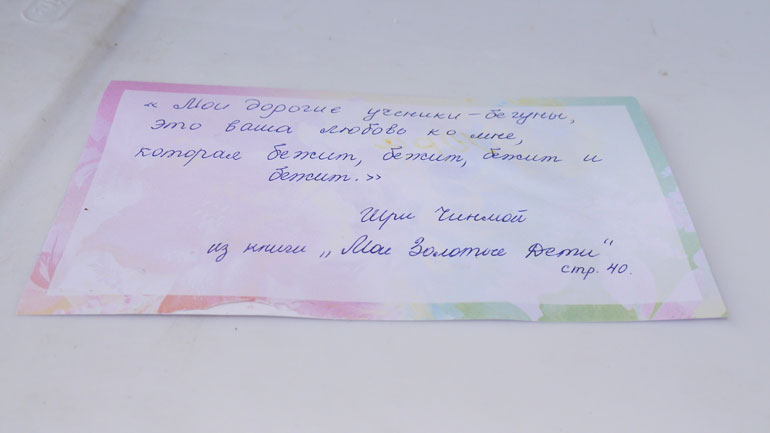 « Мои дорогие ученики – бегуны,
это ваша любовь ко мне,
которая бежит, бежит, бежит и
бежит.»
Шри Чинмой
из книги „Мои Золотые Дети“
стр. 40.